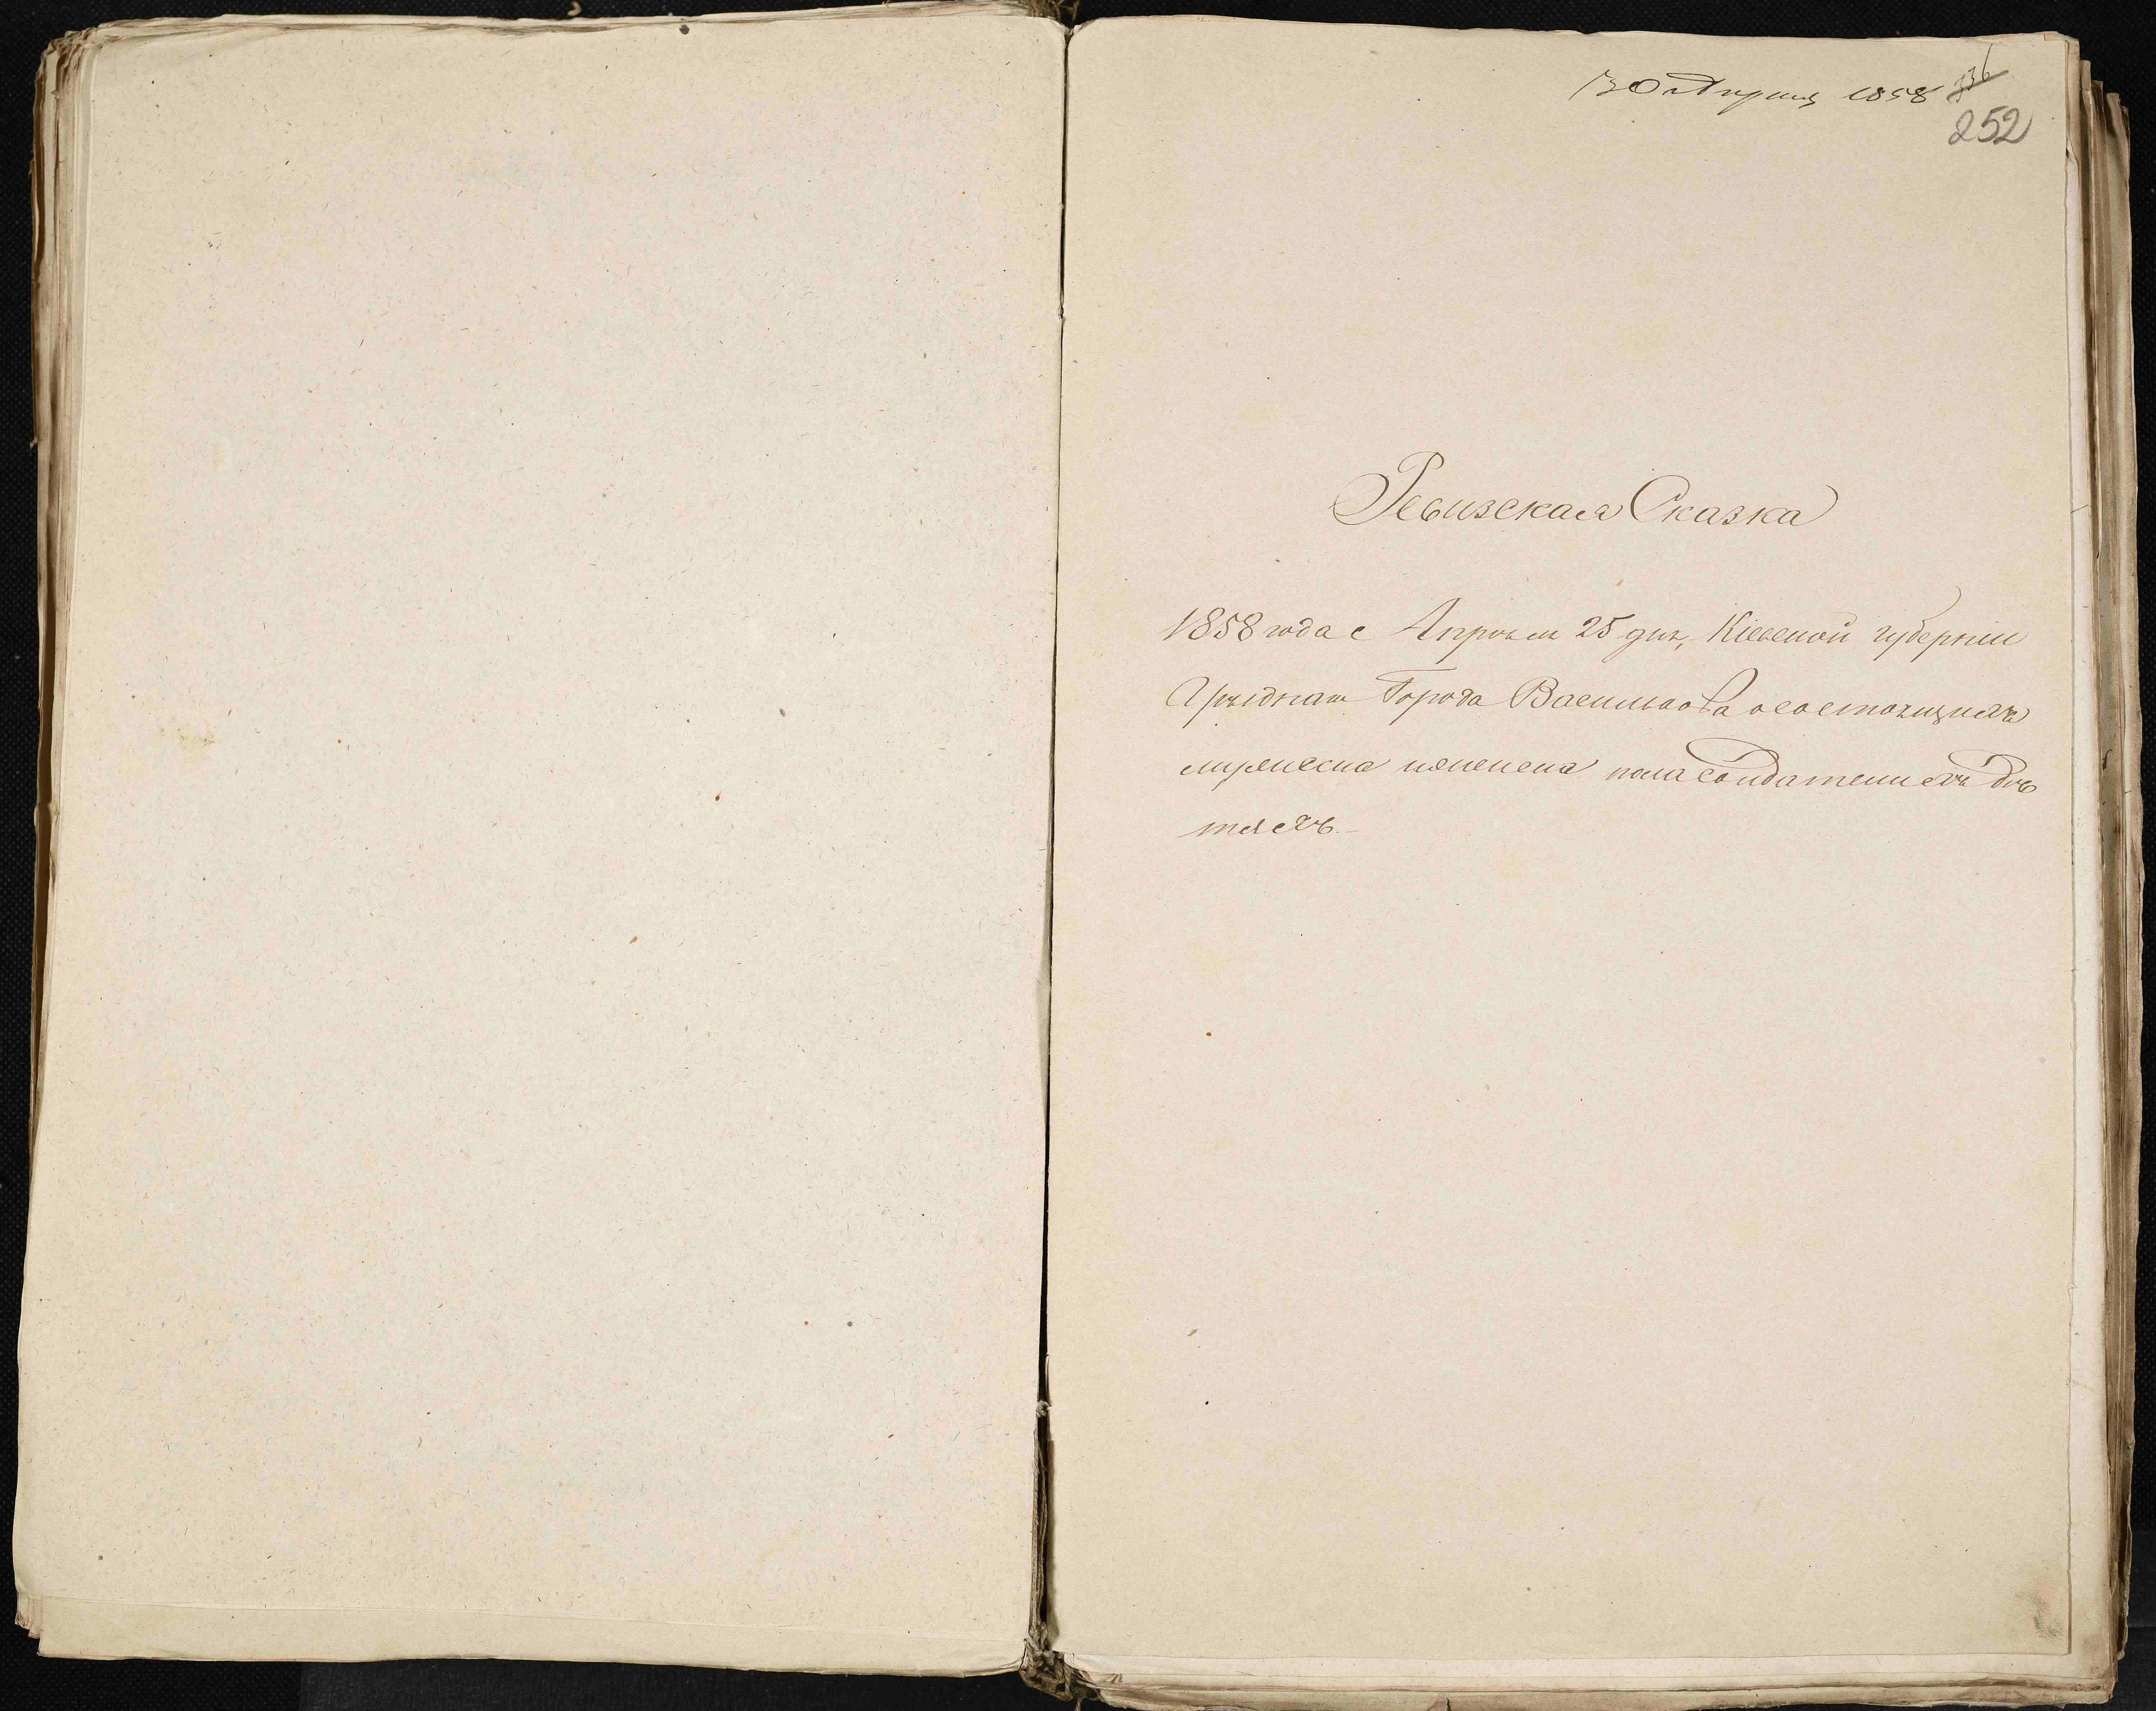 30 Апреля 1858
336
252
Ревизская Сказка
1858 года Апреля 25 дня, Кіевской губерніи
Города Василькова о состоящихъ
мужеска и женска пола солдатскихъ дѣ
тяхъ.